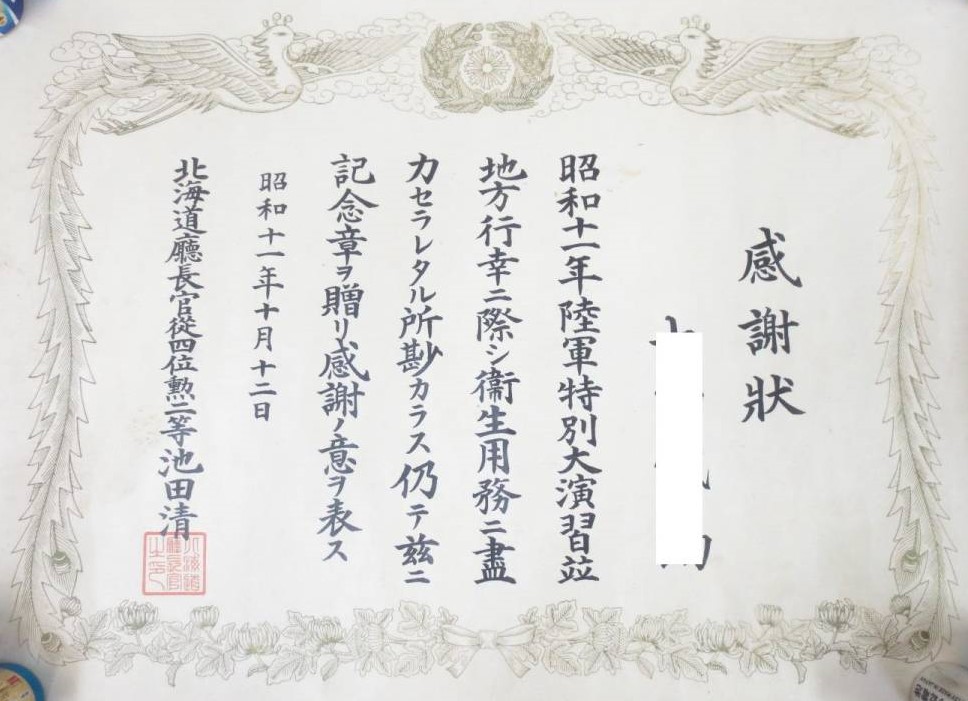 感謝狀
昭和十一年陸軍特別大演習竝
地方行幸ニ際シ衞生用務ニ盡
力セラレタル所尠カラス仍テ茲ニ
記念章ヲ贈リ感謝ノ意ヲ表ス
昭和十一年十月十二日
北海道廳長官從四位勲二等池田清
北海道廳長官之印